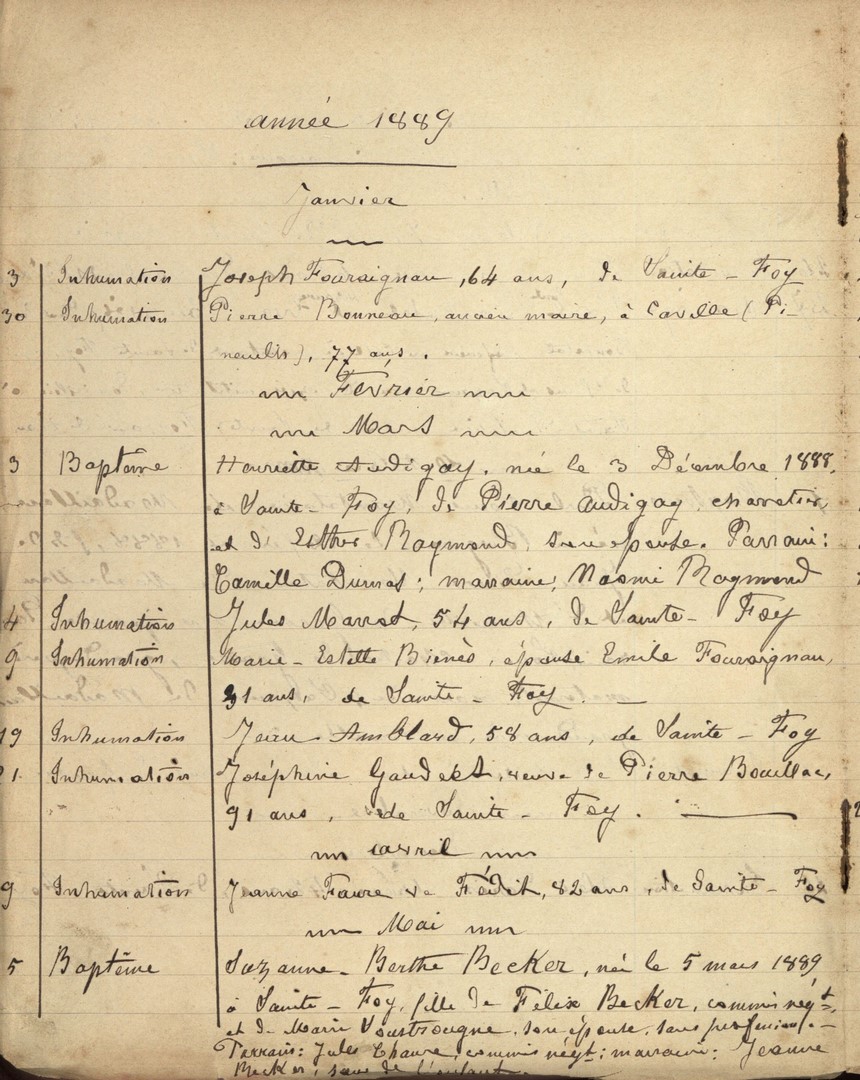 année 1889
Janvier
3 Inhumation Joseph Fouraignan, 64 ans, de Sainte-Foy
30 Inhumation Pierre Bonneau, ancien maire, à Caville (Pi-
neuilh), 77 ans.
Février
Mars
3 Baptême Henriette Audigay, née le 3 Décembre 1888,
à Sainte-Foy, de Pierre Audigay, charretier,
et d'Esther Raymond, son épouse. Parrain:
Camille Dumas; marraine: Naomi Raymond
4 Inhumation Jules Marrot, 54 ans, de Sainte-Foy
9 Inhumation Marie-Estelle Bienès, épouse Emile Fouraignan,
31 ans, de Sainte-Foy. —
19 Inhumation Jean Amblard, 58 ans, de Sainte-Foy
21. Inhumation Joséphine Gaudet, veuve de Pierre Bouillac,
91 ans, de Sainte-Foy. —
avril
9 Inhumation Jeanne Faure ve Fédit, 82 ans, de Sainte-Foy
Mai
5 Baptême Suzanne-Berthe Becker, née le 5 mars 1889
à Sainte-Foy, fille de Félix Becker, commis négt,
et de Marie son épouse, sans profession. —
Parrain: Jules commis négt; marraine: Jeanne
Becker, sœur de l'enfant.